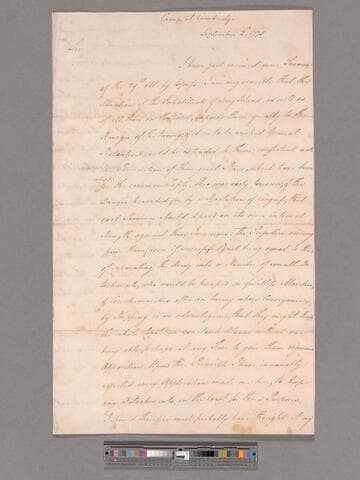 Camp at Cambridge
September 2d 1775
Sir
I have just received your Favour
of the 29th ult. by Express I am very sensible that the
Situation of the Inhabitants of Long Island as well as
of all those on the Coast, exposes them greatly to the
Ravages of the Enemy; it is to be wished General
Protection could be extended to them, consistent with
the Prosecution of those great Plans, which have been
adopted
for the common Safety. This was early foreseen, & the
Danger provided for by a Resolution of Congress, that
each Province should depend on its own internal
Strength against these Incursions. The Prejudice arising
from them, (even if successful) not being equal to that
of separating the Army into a Number of small De-
tachments, who would be harassed in fruitless Marches,
& Countermarches after an Enemy whose Conveyance
by Shipping is so advantageous, that they might keep
the whole Coast in constant Alarm without our
being able perhaps at any Time to give them vigorous
Opposition. Upon this Principle I have invariably
rejected every Application made me here, to keep
any Detachments on the Coast for these Purposes.
I should therefore most probably have thought it my